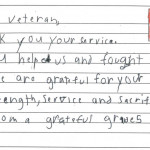 veteran,
k you your service.
u help us and fought
e are grateful for your
rength, service and sacrif
om a grateful